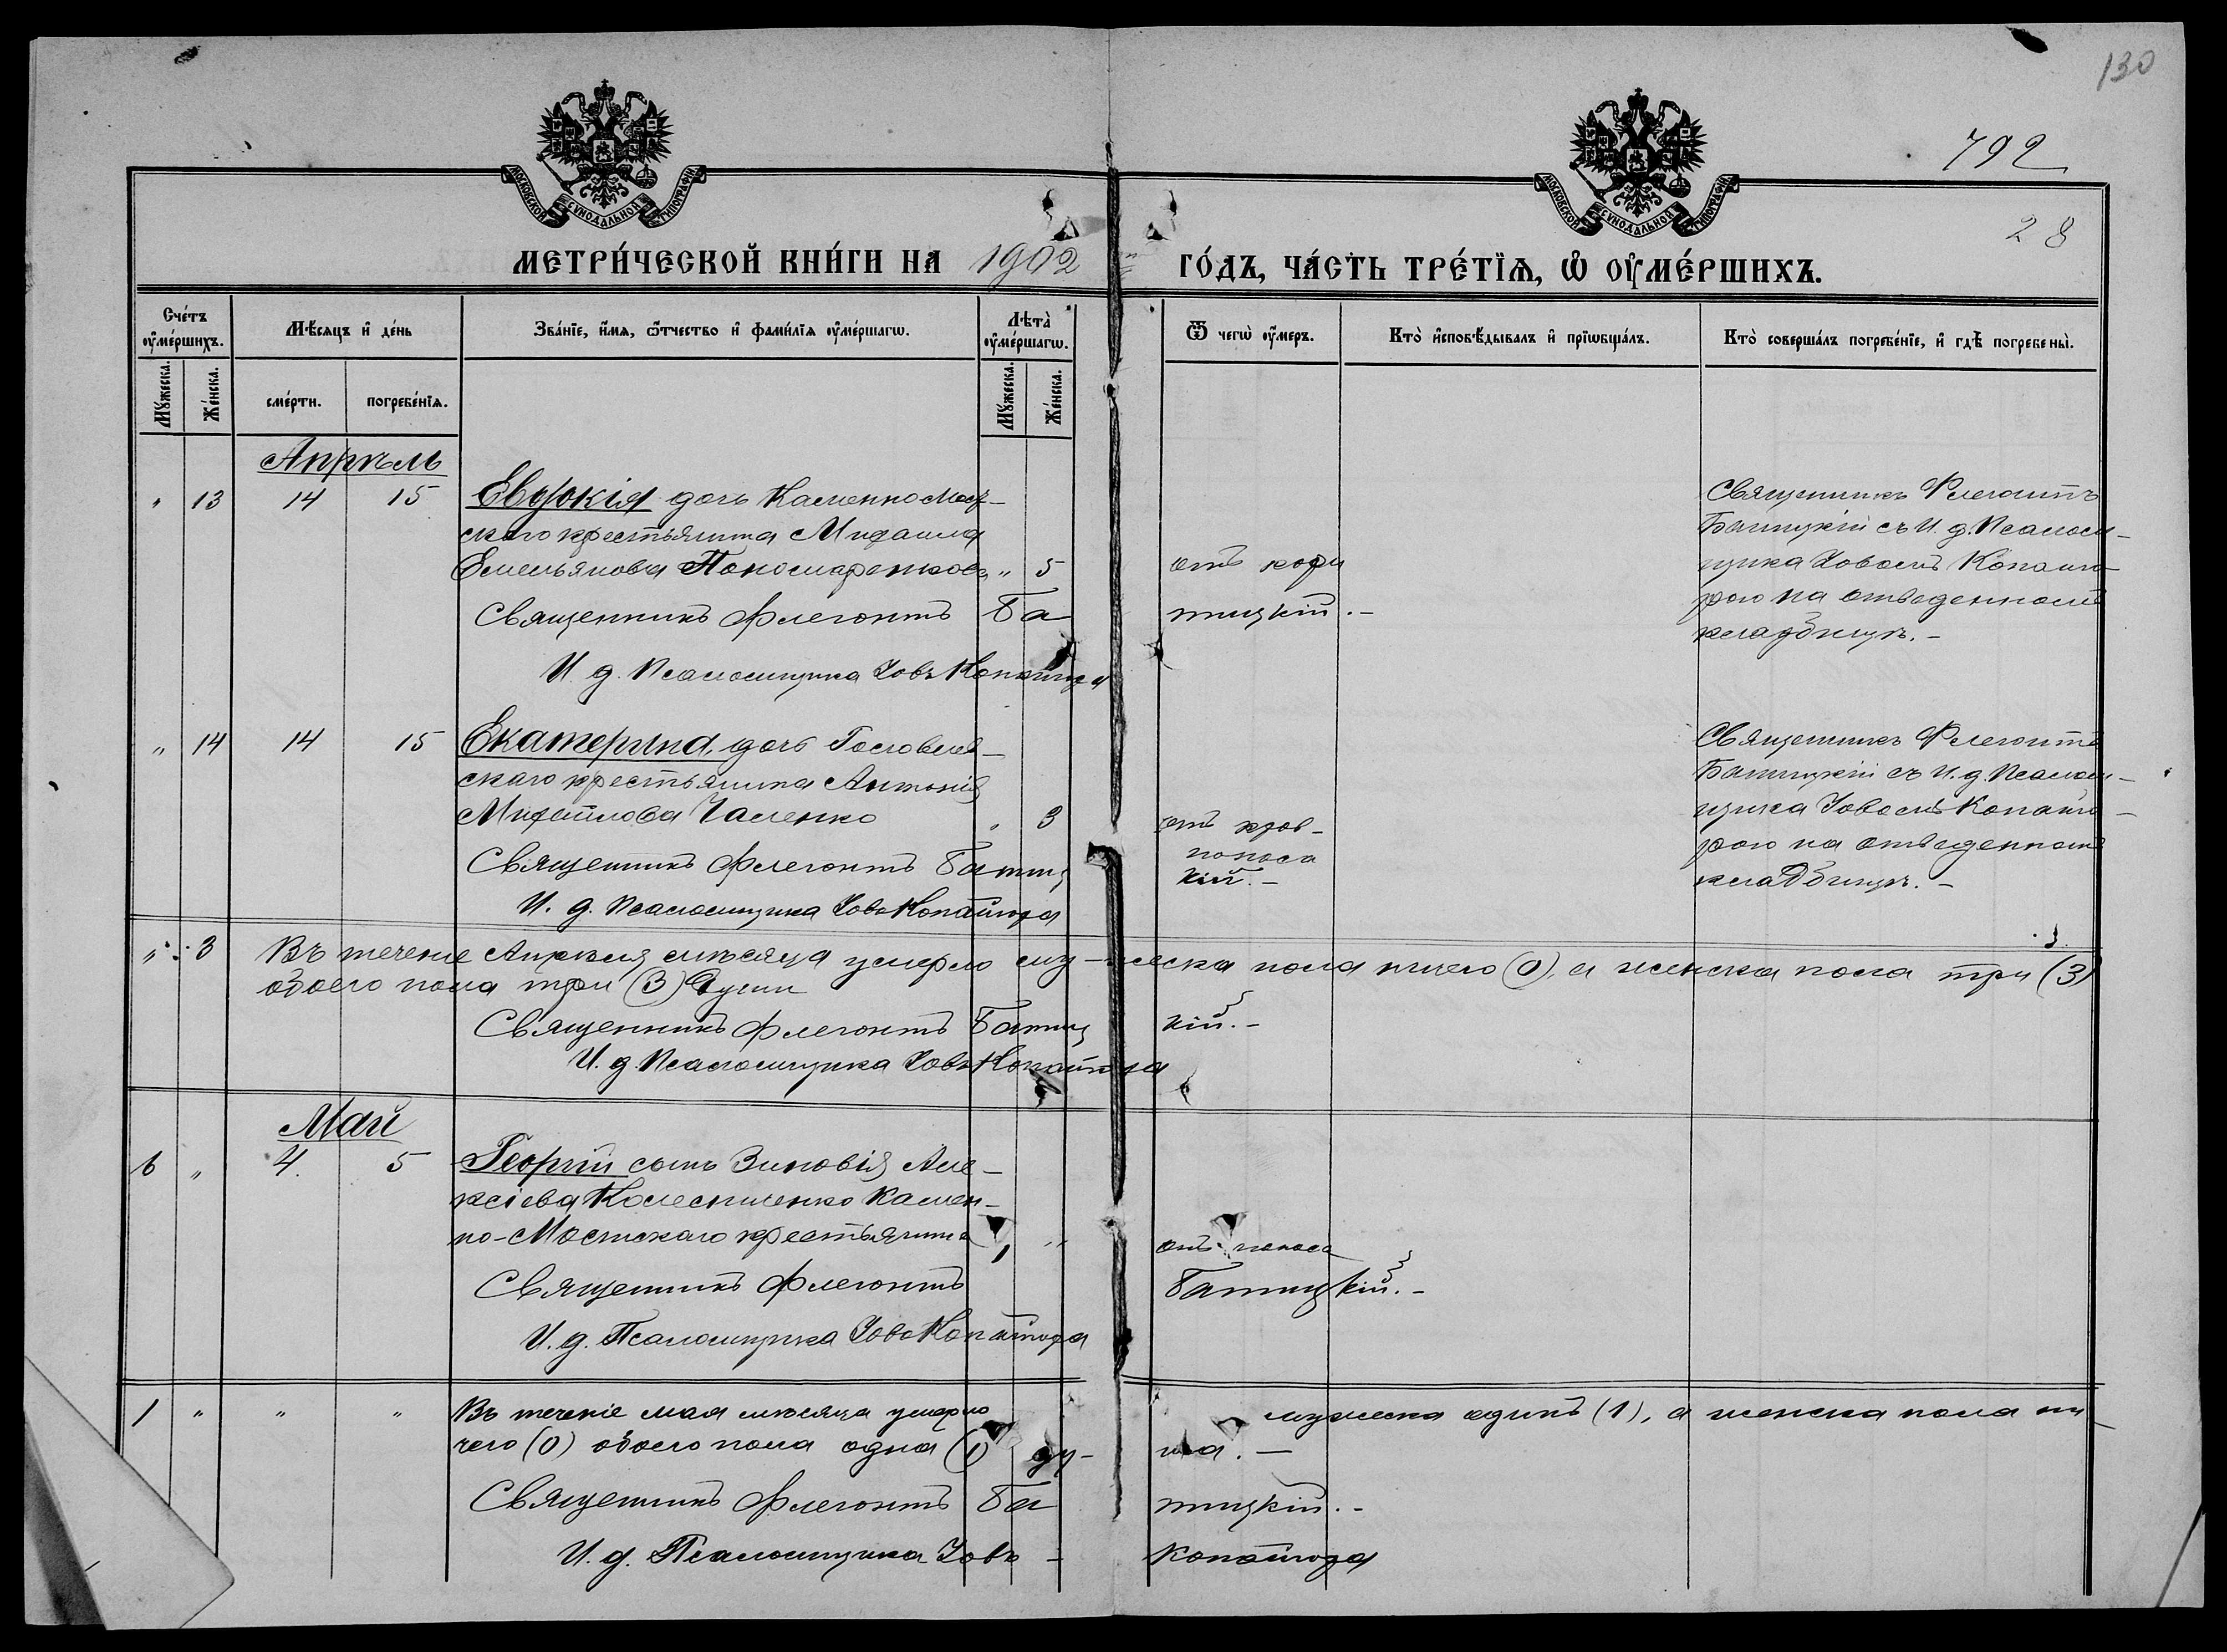 130
792
28
МОСКОВСКОЙ СѴНОДАЛЬНОЙ ТИПОГРАФІИ
МОСКОВСКОЙ СѴНОДАЛЬНОЙ ТИПОГРАФІИ
МЕТРИ́ЧЕСКОЙ КНИ́ГИ НА 1902 ГО́ДЪ, ЧА́СТЬ ТРЕ́ТЇѦ, Ѡ ОУМЕ́РШИХЪ.
Сче́тъ оуме́ршихъ.
Мѣ́сяцъ и де́нь
Зва́нїе, и́мя, ѻ́тчество и фами́лїя оуме́ршагѡ.
Лѣта̀ оуме́ршагѡ.
Ѿ чегѡ̀ оу́меръ.
Кто̀ и҆сповѣ́дывалъ и҆ прїѡбща́лъ.
Кто̀ соверша́лъ погребе́нїе, и҆ гдѣ̀ погребены̀.
Мꙋ́жеска.
Же́нска.
сме́рти.
погребе́нїя.
Мꙋ́жеска.
Же́нска.
Апрѣль
" 13 14 15 Евдокія дочь Каменно Мост-
скаго крестьянина Михаила
Емельянова Пономаренкова " 5 отъ кори
Священникъ Флегонтъ Ба тицкій.-
И. д. Псаломщика Іовъ Копайгора
Священникъ Флегонтъ
Батицкій съ И. д. Псалом-
щика Іовомъ Копайго-
рою на отведенномъ
кладбищѣ.-
" 14 14 15 Екатерина, дочь
скаго крестьянина Антонія
Михайлова Чаленко " 3 отъ кров-
поноса
Священникъ Флегонтъ Батиц кій.-
И. д. Псаломщика Іовъ Копайгора
Священникъ Флегонтъ
Батицкій съ И. д. Псалом-
щика Іовомъ Копайго-
рою на отведенномъ
кладбищѣ.-
" 3 Въ теченіе Апрѣля мѣсяца умерло му-жеска пола ничего (0), а женска пола три (3)
обоего пола три (3) души
Священникъ Флегонтъ Батиц кій.-
И. д. Псаломщика Іовъ Копайгора
Май
6 " 4 5 Георгій сынъ Зиновія Але-
ксіева Колесниченко Камен-
но-Мостскаго крестьянина 1 " отъ поноса
Священникъ Флегонтъ Батицкій.-
И. д. Псаломщика Іовъ Копайгора
1 " " " Въ теченіе мая мѣсяца умерло мужеска одинъ (1), а женска пола ни-
чего (0) обоего пола одна (1) ду- ша.-
Священникъ Флегонтъ Ба тицкій.-
И. д. Псаломщика Іовъ - Копайгора